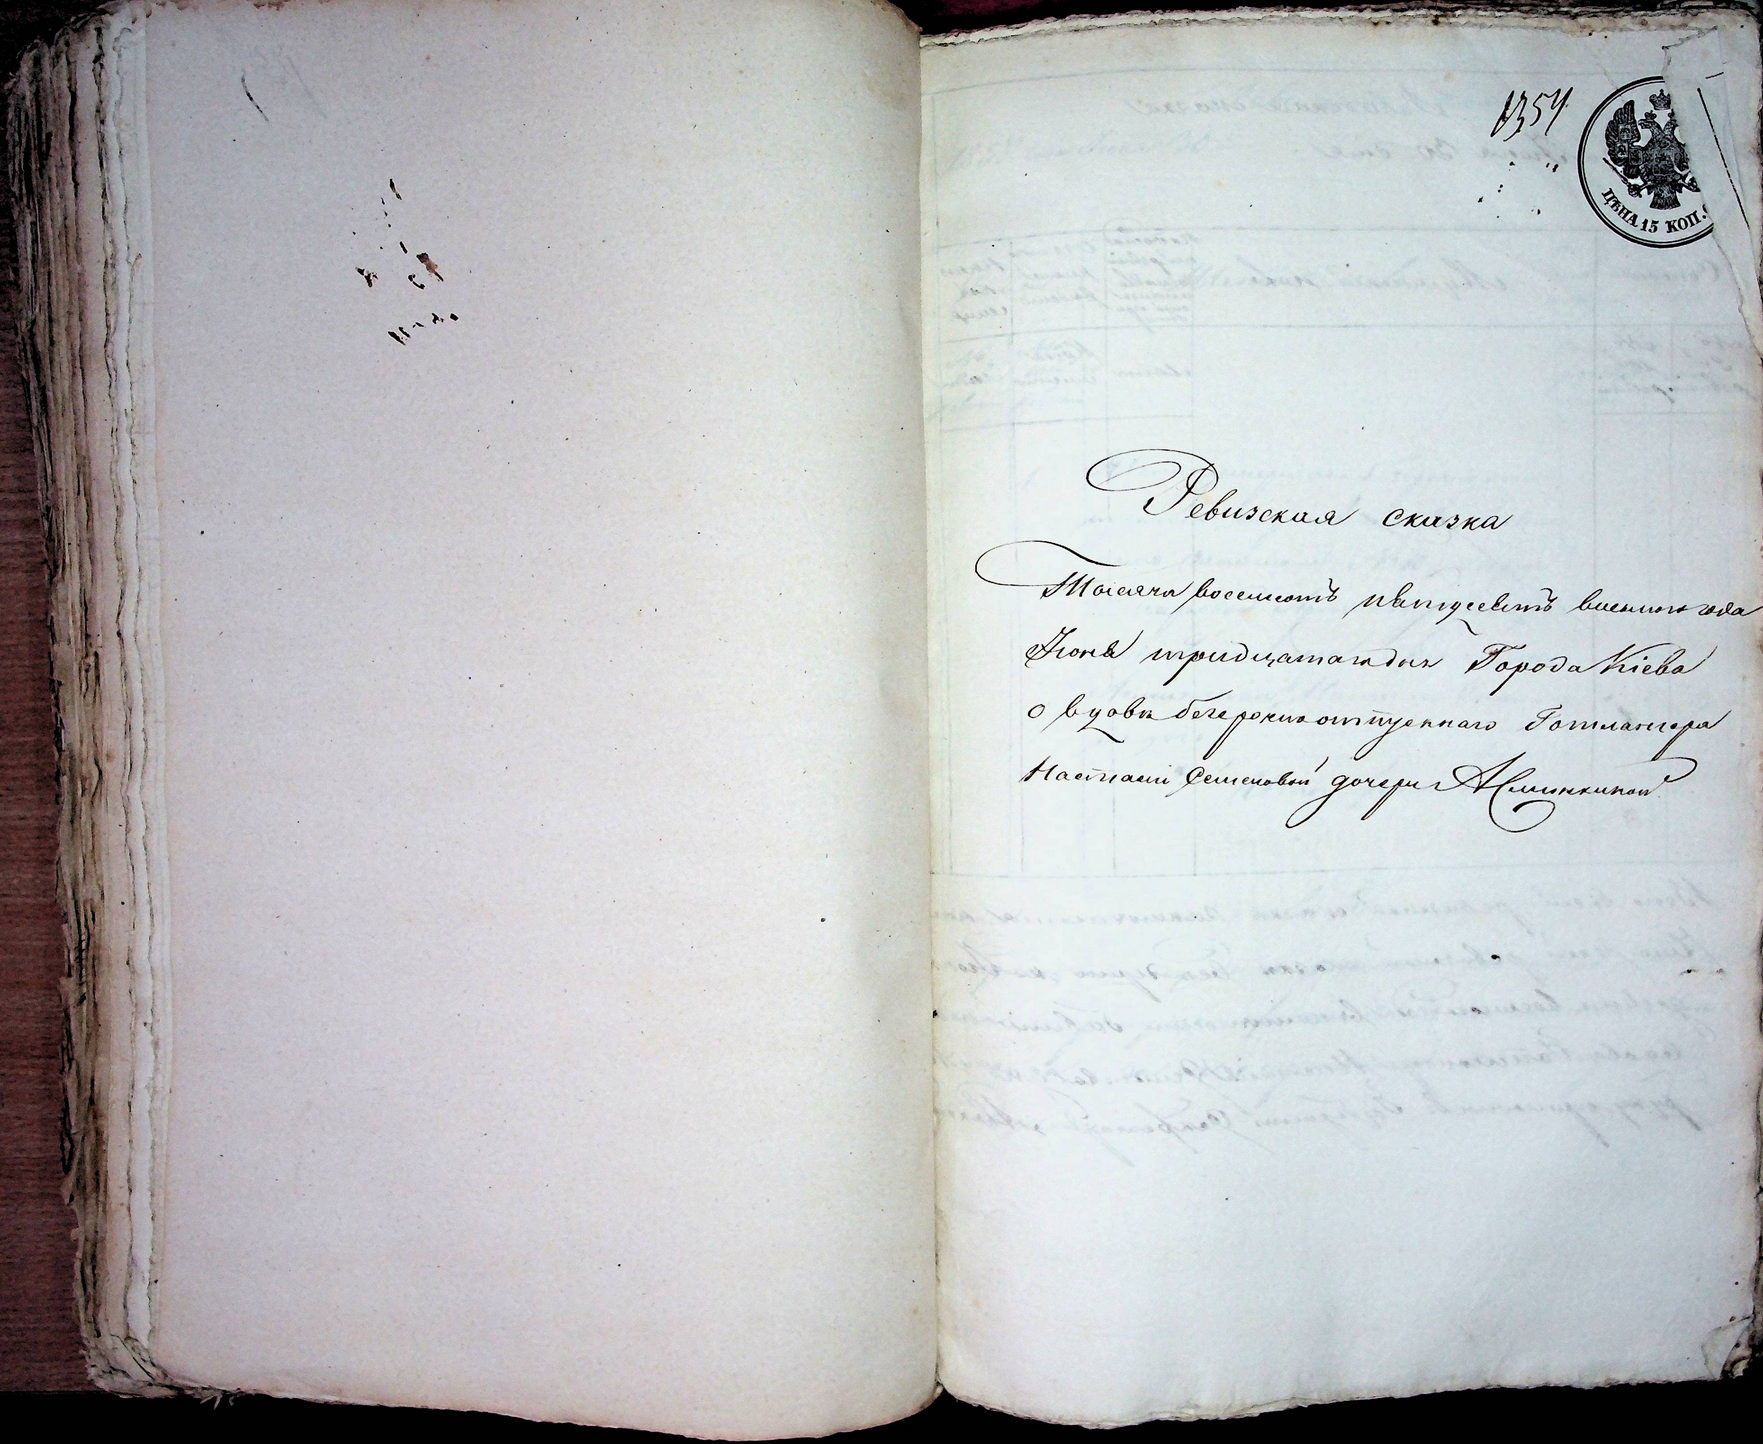 1354
ЦѢНА 15 КОП.
Ревизская сказка
Тысяча восемьсотъ пятдесятъ восьмого года
Іюня тридцатаго дня Города Кіева
о вдовѣ безсрочно отпускнаго
Настасіи Семеновой дочери